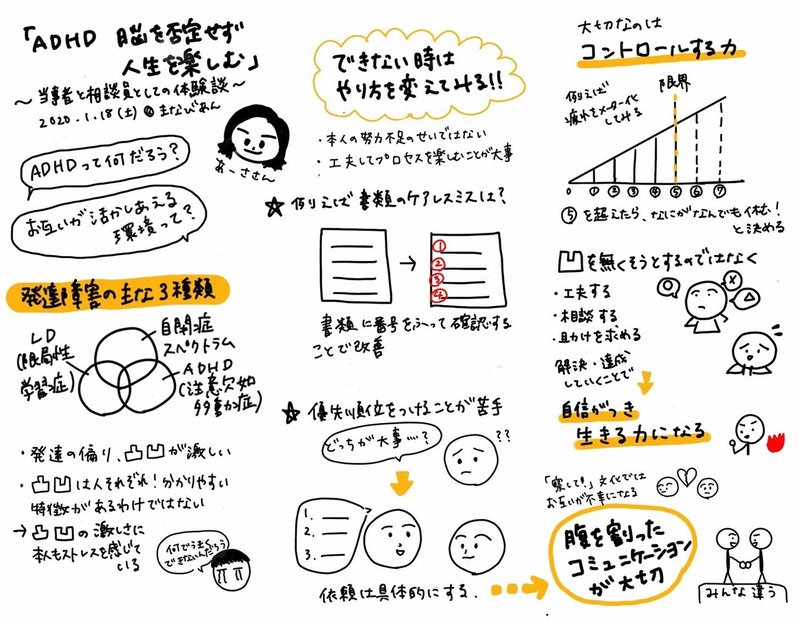 「ADHD 脳を否定せず
人生を楽しむ」
〜当事者と相談員としての体験談〜
2020.1.18(土) @まなびあん
あーささん
ADHDって何だろう?
お互いが活かしあえる
環境って?
発達障害の主な3種類
LD
(限局性
学習症)
自閉症
スペクトラム
ADHD
(注意欠如
多動症)
・発達の偏り、凸凹が激しい
・凸凹は人それぞれ!分かりやすい
特徴があるわけではない
→凸凹の激しさに
本人もストレスを感じて
いる
何でうまく
できないんだろう
できない時は
やり方を変えてみる!!
・本人の努力不足のせいではない
・工夫してプロセスを楽しむことが大事
☆例えば書類のケアレスミスは?
→
①
②
③
④
書類に番号をふって確認する
ことで改善
☆優先順位をつけることが苦手
どっちが大事…?
??
1.
2.
3.
依頼は具体的にする.
大切なのは
コントロールする力
例えば
疲れをメーター化
してみる
限界
0 ① ② ③ ④ ⑤ ⑥ ⑦
⑤を超えたら、なにがなんでも休む!
と決める
凹を無くそうとするのではなく
・工夫する
・相談する
・助けを求める
解決・達成
していくことで
自信がつき
生きる力になる
「察して!」文化では
お互いが不幸になる
腹を割った
コミュニケーション
が大切
みんな違う